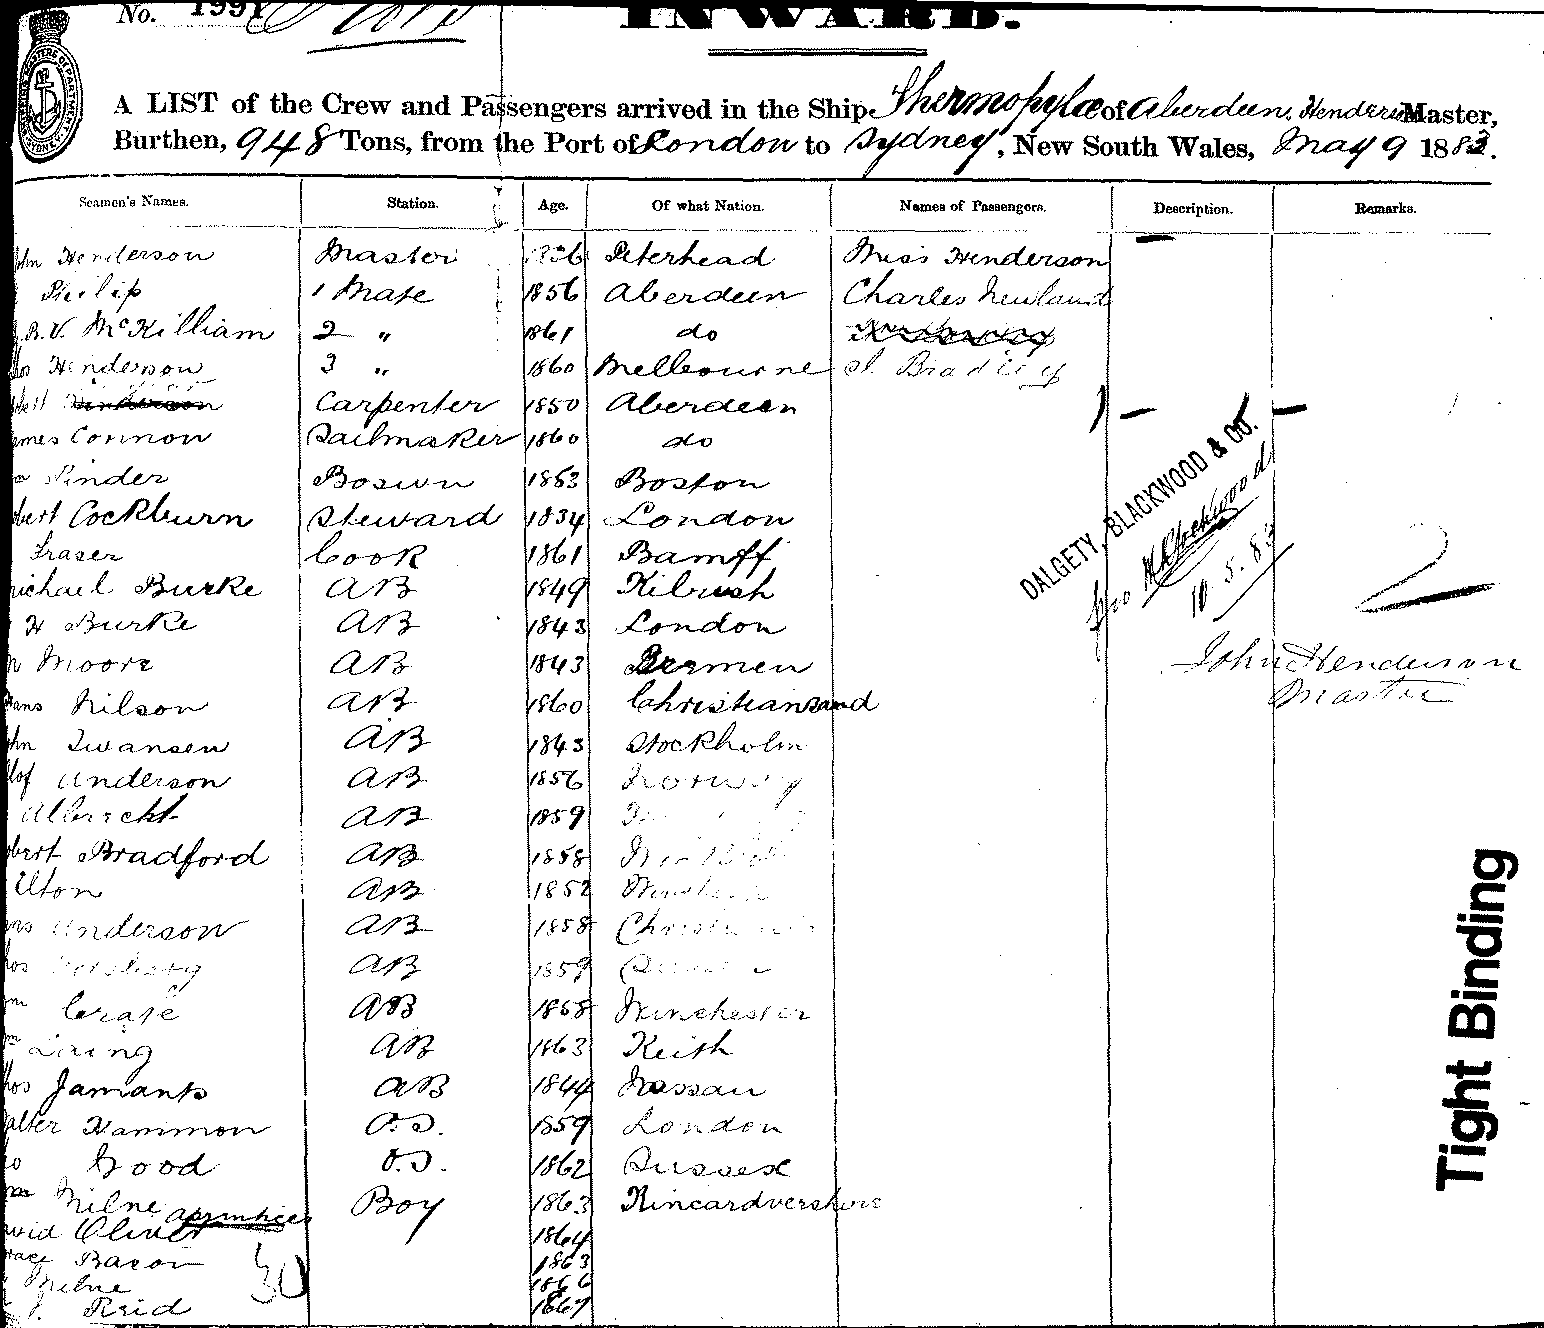 No. 1991
INWARD.
A LIST of the Crew and Passengers arrived in the Ship Thermopylae of Aberdeen, Henderson Master,
Burthen, 948 Tons, from the Port of London to Sydney, New South Wales, May 9 1883.
Seamen's Names. Station. Age. Of what Nation. Names of Passengers. Description. Remarks.
John Henderson Master 1836 Peterhead Miss Henderson
Philip 1 Mate 1856 Aberdeen Charles Newland
R. V. McKilliam 2 " 1861 do
Henderson 3 " 1860 Melbourne Bradley
Carpenter 1850 Aberdeen
James Connon Sailmaker 1860 do
Pinder Boswn 1853 Boston
Robert Cockburn Steward 1834 London
Fraser Cook 1861 Bamff
Michael Burke AB 1849 Kilrush
H Burke AB 1843 London
Moore AB 1843 Bremen
Hans Nilson AB 1860 Christiansand
John Swansen AB 1843 Stockholm
Olof Anderson AB 1856 Norway
Albrecht AB 1859
Robert Bradford AB 1858
Elton AB 1852
Anderson AB 1858
AB 1859
Crase AB 1858 Winchester
Laing AB 1863 Keith
Jamants AB 1844 Nassau
Walter Hammon O.S. 1859 London
Wood O.S. 1862 Sussex
Milne apprentices Boy 1863 Kincardineshire
David Oliver 1864
Horace Bacon 1863
Milne 1866
Reid 1867
30
DALGETY, BLACKWOOD & CO.
pro
10.5.83
2
John Henderson
Master
Tight Binding